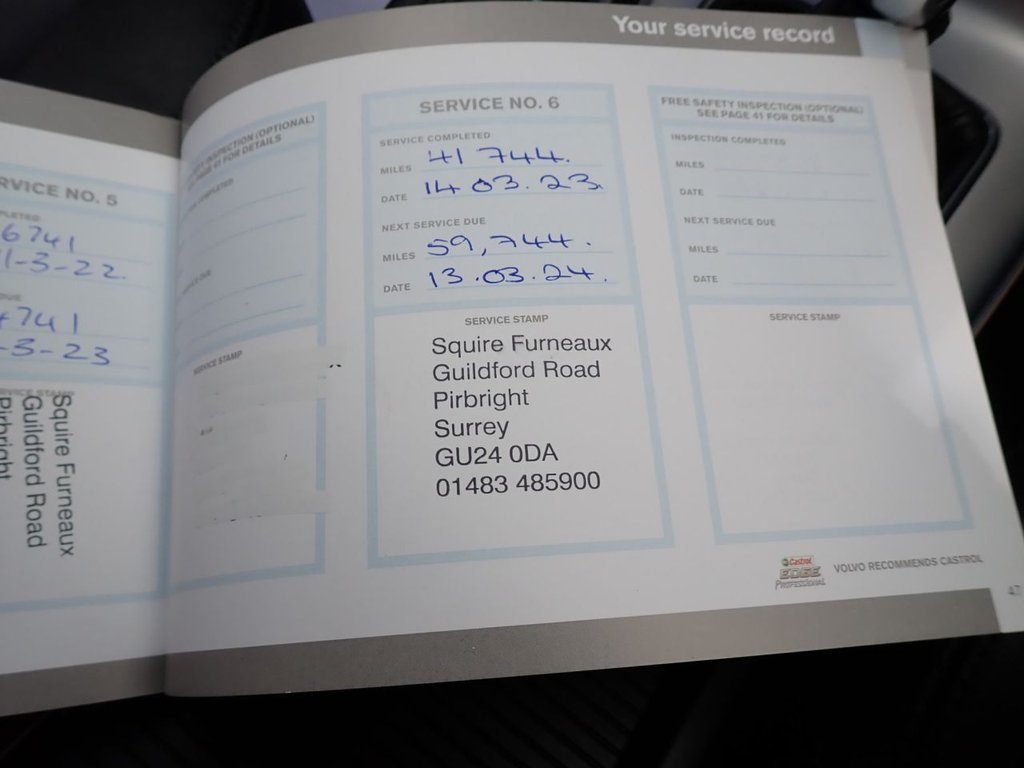 Your service record
RVICE NO. 5
PLETED
6741
1-3-22.
DUE
4741
-3-23
Squire Furneaux
Guildford Road
Pirbright
INSPECTION (OPTIONAL)
PAGE 41 FOR DETAILS
SERVICE STAMP
SERVICE NO. 6
SERVICE COMPLETED
MILES 41 744.
DATE 14 03. 23.
NEXT SERVICE DUE
MILES 59,744.
DATE 13.03.24.
SERVICE STAMP
Squire Furneaux
Guildford Road
Pirbright
Surrey
GU24 0DA
01483 485900
FREE SAFETY INSPECTION (OPTIONAL)
SEE PAGE 41 FOR DETAILS
INSPECTION COMPLETED
MILES
DATE
NEXT SERVICE DUE
MILES
DATE
SERVICE STAMP
Castrol
EDGE
PROFESSIONAL
VOLVO RECOMMENDS CASTROL
47